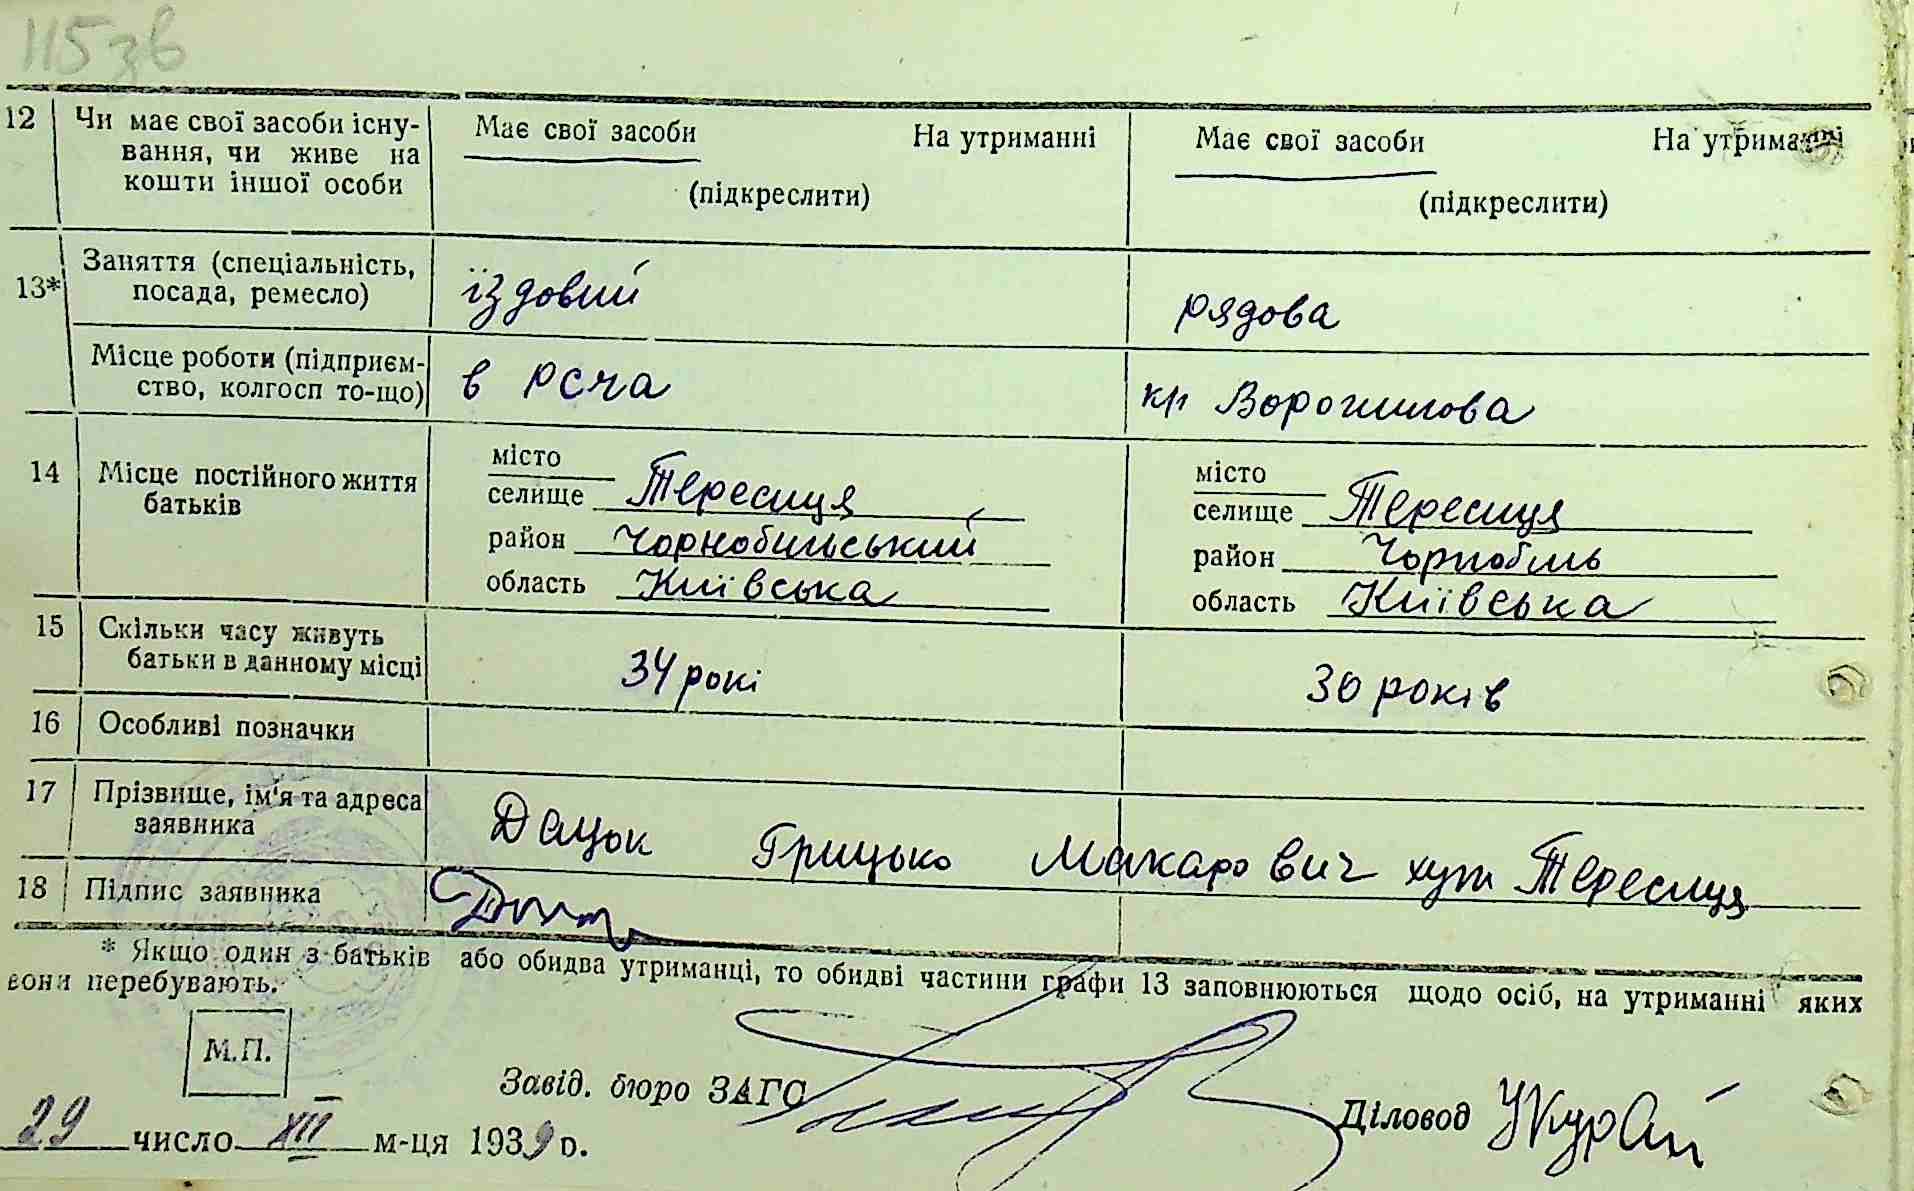 115зв
12 Чи має свої засоби існу-
вання, чи живе на
кошти іншої особи
Має свої засоби На утриманні
(підкреслити)
Має свої засоби На утриманні
(підкреслити)
13* Заняття (спеціальність,
посада, ремесло)
їздовий
рядова
Місце роботи (підприєм-
ство, колгосп то-що)
в РСЧА
кп Ворошилова
14 Місце постійного життя
батьків
місто
селище Тересиця
район Чорнобильський
область Київська
місто
селище Тересиця
район Чорнобиль
область Київська
15 Скільки часу живуть
батьки в данному місці
34 рокі
30 років
16 Особливі позначки
17 Прізвище, ім'я та адреса
заявника
Дацок Грицько Макарович хут Тересиця
18 Підпис заявника
* Якщо один з батьків або обидва утриманці, то обидві частини графи 13 заповнюються щодо осіб, на утриманні яких
вони перебувають.
М.П.
Завід. бюро ЗАГС
Діловод
29 число XII м-ця 1939 р.